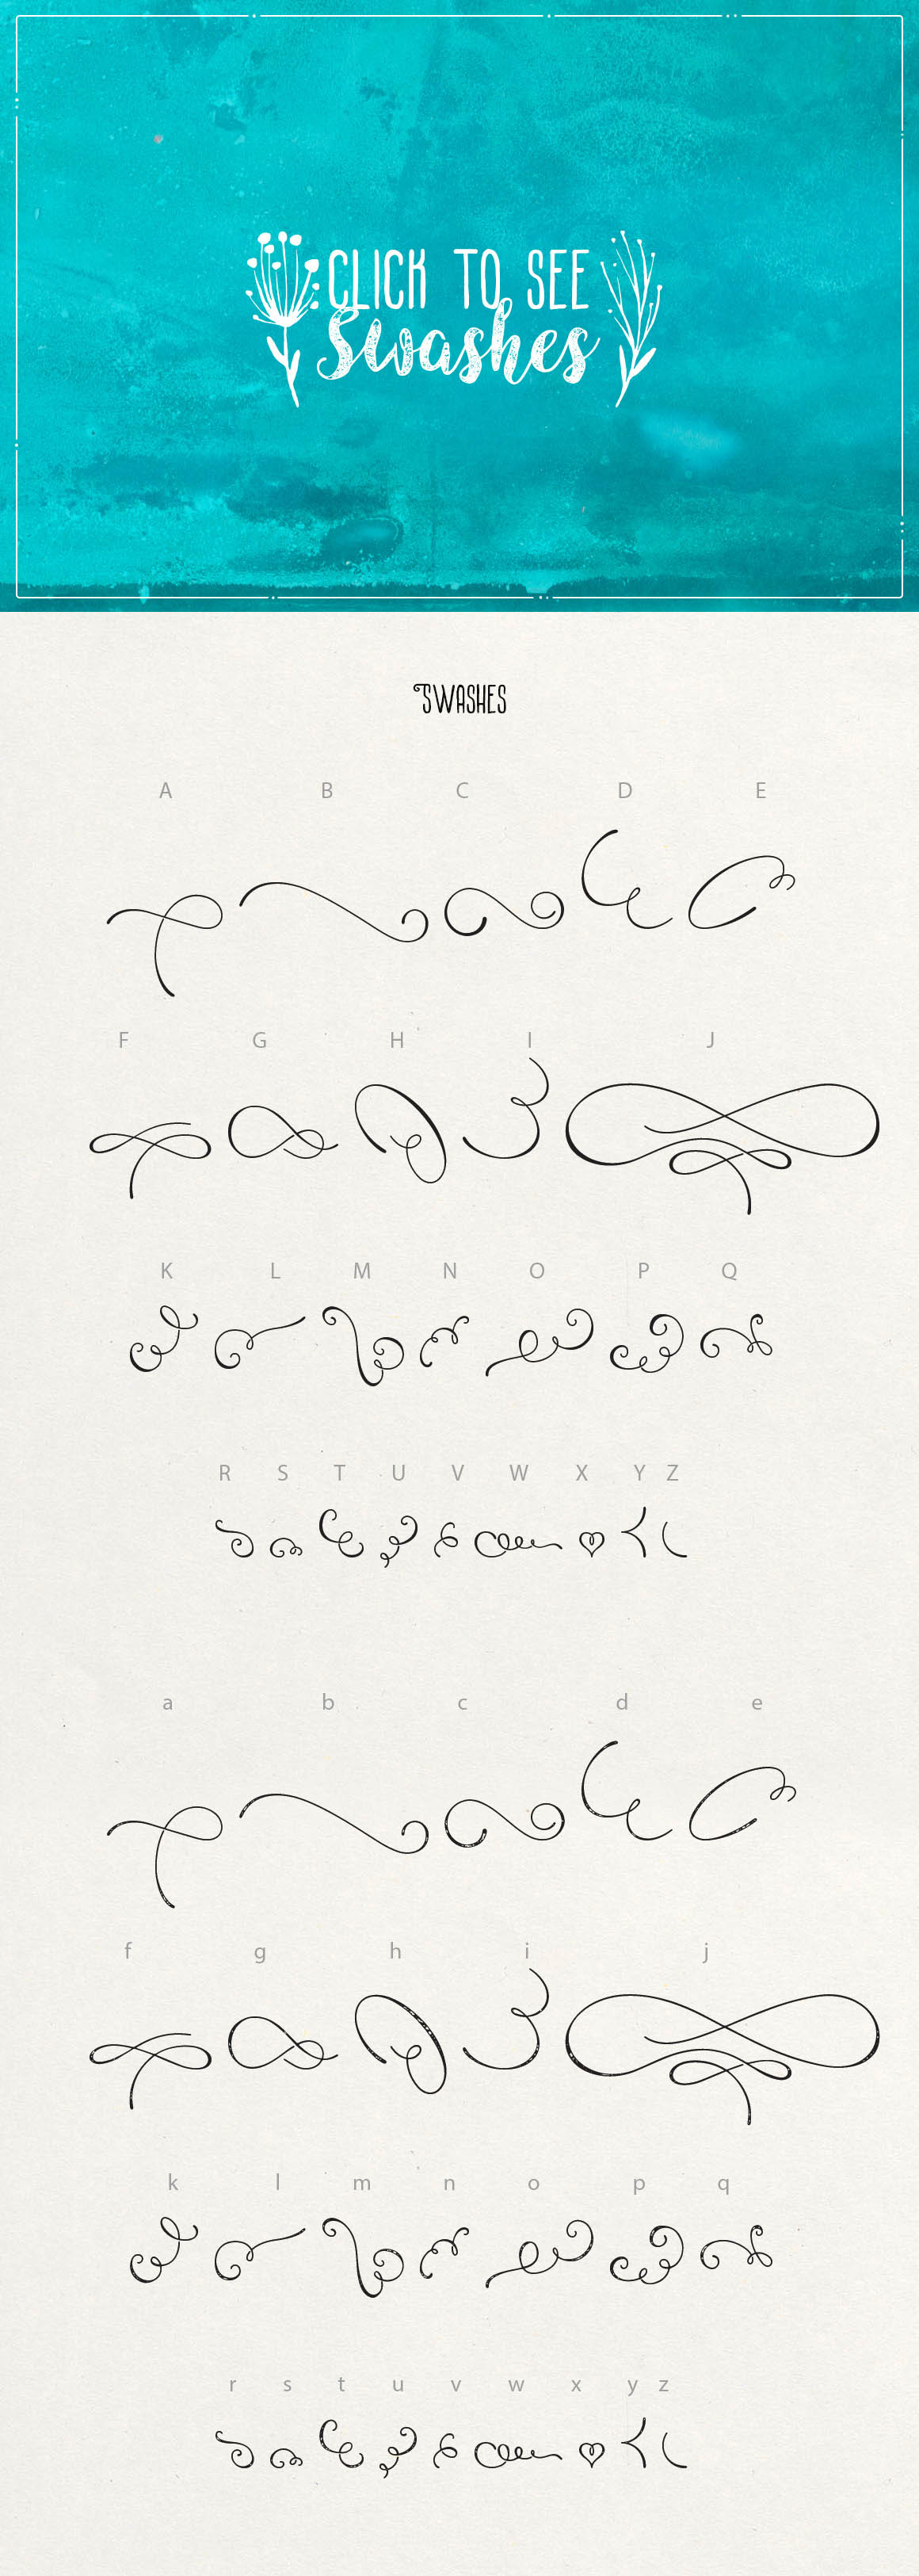 CLICK TO SEE
Swashes
SWASHES
A B C D E
F G H I J
K L M N O P Q
R S T U V W X Y Z
a b c d e
f g h i j
k l m n o p q
r s t u v w x y z